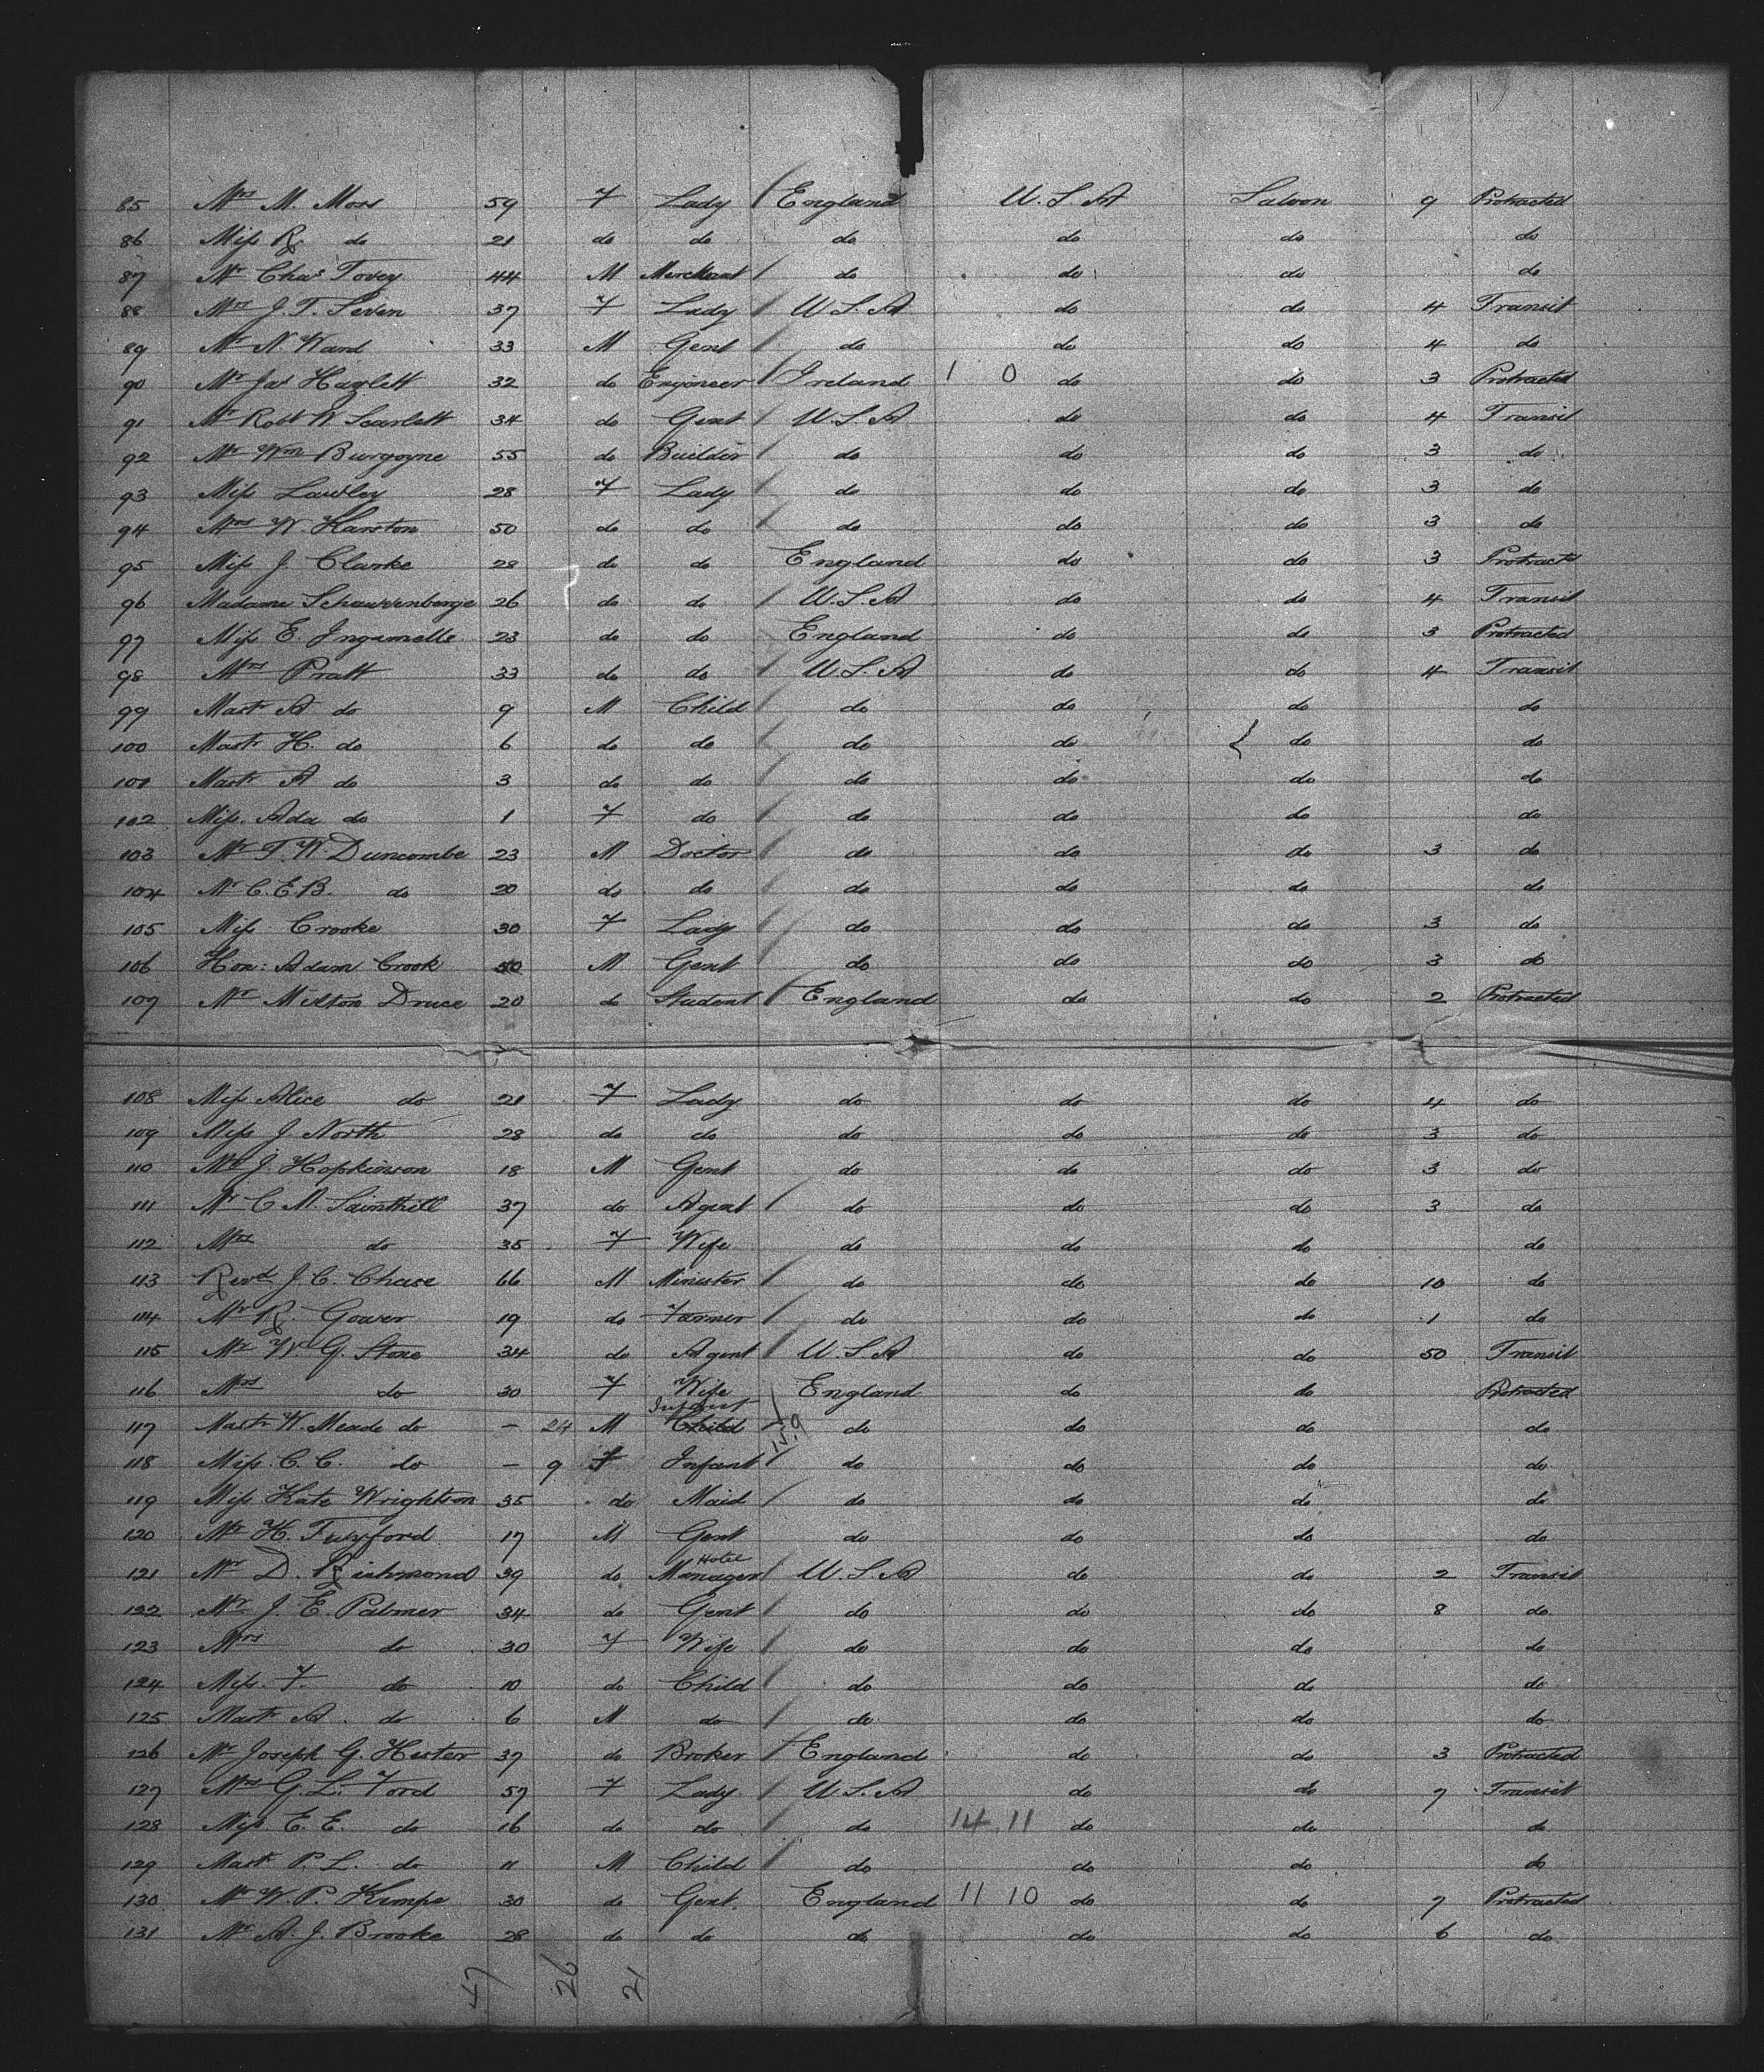 85 Mrs M. Moss 59 F Lady England U.S.A Saloon 9 Protracted
86 Miss R. do 21 do do do do do do
87 Mr Chas Tovey 44 M Merchant do do do do
88 Mrs J. T. Seven 37 F Lady U.S.A do do 4 Transit
89 Mr N. Ward 33 M Gent do do do 4 do
90 Mr Jas Hazlett 32 do Engineer Ireland 1 0 do do 3 Protracted
91 Mr Robt W Scarlett 34 do Gent U.S.A do do 4 Transit
92 Mr Wm Burgoyne 55 do Builder do do do 3 do
93 Miss Lawley 28 F Lady do do do 3 do
94 Mrs W. Karston 50 do do do do do 3 do
95 Miss J. Clarke 28 do do England do do 3 Protractd
96 Madame Schauvenberge 26 do do U.S.A do do 4 Transit
97 Miss E. Ingamells 23 do do England do do 3 Protracted
98 Mrs Pratt 33 do do U.S.A do do 4 Transit
99 Mastr A do 9 M Child do do do do
100 Mastr H. do 6 do do do do do do
101 Mastr A do 3 do do do do do do
102 Miss. Ada do 1 F do do do do do
103 Mr T. W. Duncombe 23 M Doctor do do do 3 do
104 Mr C. E. B. do 20 do do do do do do
105 Miss Crooke 30 F Lady do do do 3 do
106 Hon: Adam Crook 50 M Gent do do do 3 do
107 Mr Milton Druce 20 do Student England do do 2 Protracted
108 Miss Alice do 21 F Lady do do do 4 do
109 Miss J. North 28 do do do do do 3 do
110 Mr J. Hopkinson 18 M Gent do do do 3 do
111 Mr C M. Sainthill 37 do Agent do do do 3 do
112 Mrs do 35 F Wife do do do do
113 Revd J. C. Chase 66 M Minister do do do 10 do
114 Mr R. Gower 19 do Farmer do do do 1 do
115 Mr W. G. Stone 34 do Agent U.S.A do do 50 Transit
116 Mrs do 30 F Wife England do do Protracted
Infant
117 Mastr W. Meade do – 24 M Child do do do do
118 Miss. C. C. do – 9 F Infant do do do do
119 Miss Kate Wrightson 35 do Maid do do do do
120 Mr H. Twyford 17 M Gent do do do do
121 Mr D. Richmond 39 do Hotel Manager U.S.A do do 2 Transit
122 Mr J. E. Palmer 34 do Gent do do do 8 do
123 Mrs do 30 F Wife do do do do
124 Miss. F. do 10 do Child do do do do
125 Mastr A. do 6 M do do do do do
126 Mr Joseph G. Hester 37 do Broker England do do 3 Protracted
127 Mrs G. L. Ford 57 F Lady U.S.A do do 7 Transit
128 Miss. E. E. do 16 do do do 14 11 do do do
129 Mastr P. L. do 11 M Child do do do do
130 Mr W. P. Kempe 30 do Gent. England 11 10 do do 7 Protracted
131 Mr A. J. Brooke 28 do do do do do 6 do
47 26 21